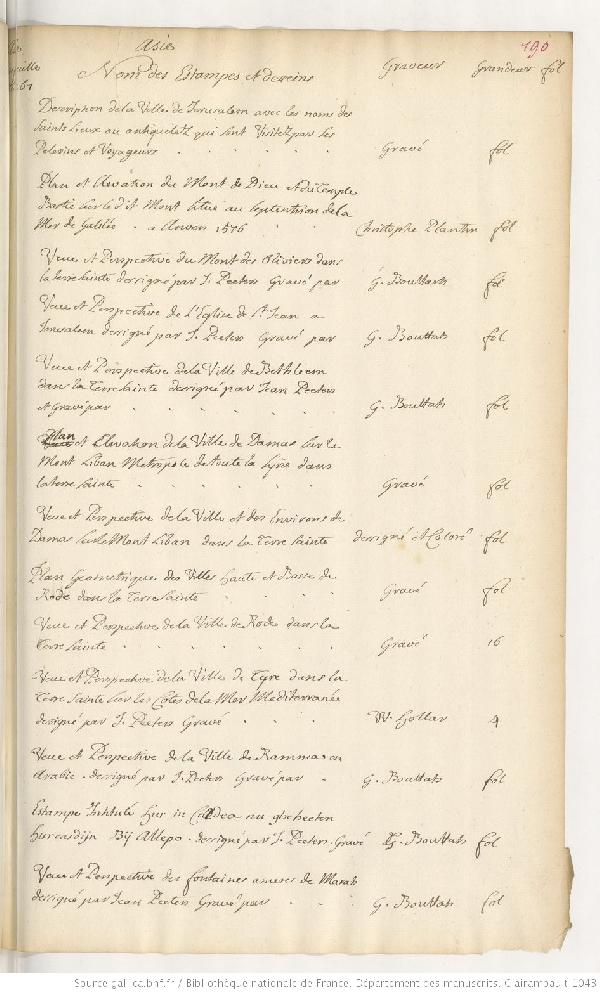 Asie 190
Noms des Estampes et desseins Graveur Grandeur fol
Description de la Ville de Jerusalem avec les noms des
saints Lieux ou antiquitez qui sont Visitez par les
Pelerins et Voyageurs Gravé fol
Plan et Elevation du Mont de Dieu et du temple
Bastie sur le dit Mont situe au septentrion de la
Mer de Galilée . a Anvers 1576 Christophe Plantin fol
Veue et Perspective du Mont des Oliviers dans
la terre sainte dessigné par J. Peeters Gravé par G. Bouttats fol
Veue et Perspective de L'Eglise de St. Jean a
Jerusalem dessigné par J. Peeters Gravé par G. Bouttats fol
Veue et Perspective de la Ville de Bethleem
dans la Terre sainte dessigné par Jean Peeters
et Gravé par G. Bouttats fol
Plan et Elevation de la Ville de Damas sur le
Mont Liban Metropole de toute la syrie dans
la terre sainte Gravé fol
Veue et Perspective de la Ville et des Environs de
Damas sur le Mont Liban dans la Terre sainte dessigné et Coloré fol
Plan Geometrique des Villes haute et Basse de
Rode dans la Terre sainte Gravé fol
Veue et Perspective de la Ville de Rode dans la
Terre sainte Gravé 16
Veue et Perspective de la Ville de Tyre dans la
Terre sainte sur les Cotes de la Mer Mediterranée
dessigné par J. Peeters Gravé W. Hollar 4
Veue et Perspective de la Ville de Ramma en
Arabie . dessigné par J. Peeters Gravé par G. Bouttats fol
Estampe Intitulé hur in Caldea nu gheheeten
hurcasdijn Bij Allepo . dessigné par J. Peeters . Gravé G. Bouttats fol
Veue et Perspective des fontaines ameres de Marah
dessigné par Jean Peeters Gravé par G. Bouttats fol
Source gallica.bnf.fr / Bibliothèque nationale de France. Département des manuscrits. Clairambault 1043